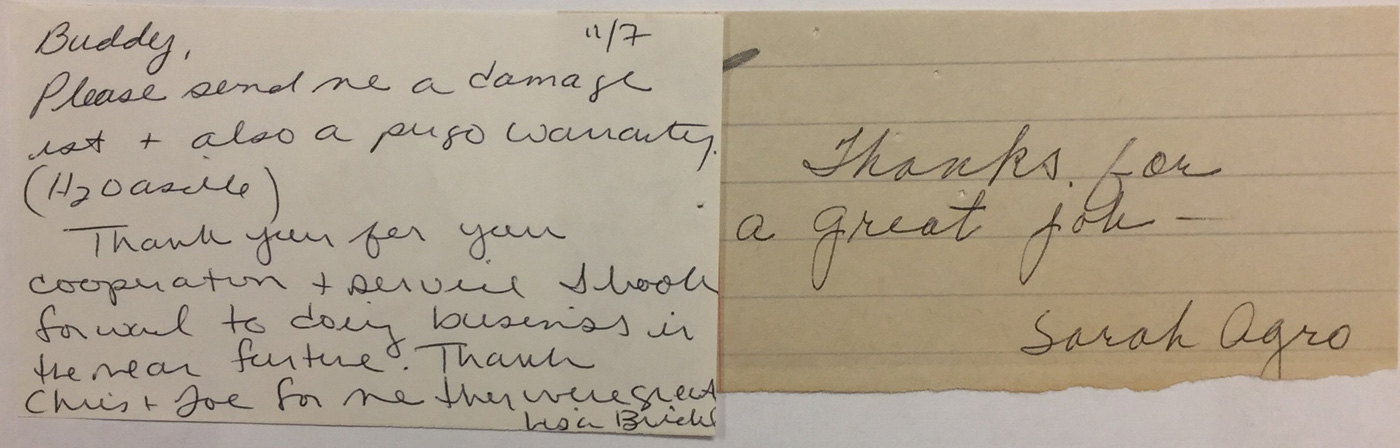 Buddy, 11/7
Please send me a damage
est + also a pugo warranty.
(H2Oasille)
Thank you for your
cooperation + service I look
forward to doing business in
the near furture. Thank
Chris + Joe for me they were great
Lisa
Thanks for
a great job –
Sarah Agro